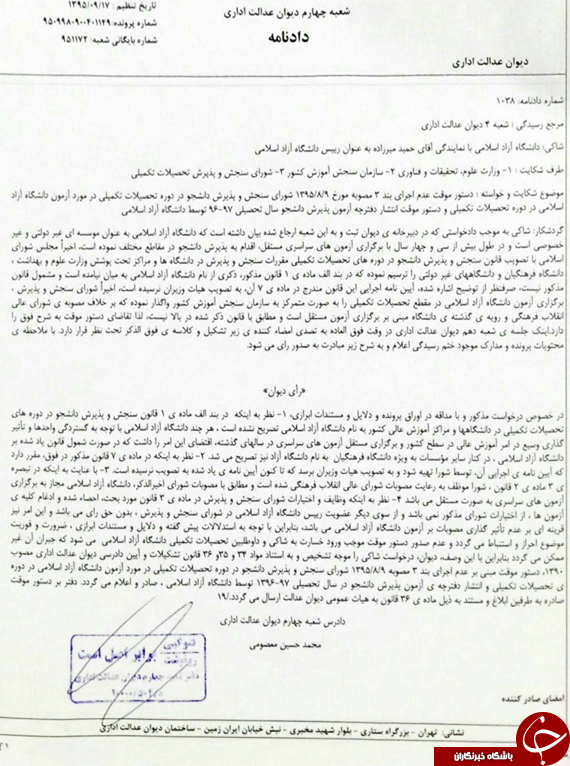 شعبه چهارم دیوان عدالت اداری
دادنامه
تاریخ تنظیم : ۱۳۹۵/۰۹/۱۷
شماره پرونده: ۹۵۰۹۹۸۰۹۰۰۴۰۱۱۴۹
شماره بایگانی شعبه: ۹۵۱۱۷۲
دیوان عدالت اداری
شماره دادنامه: ۱۰۳۸
مرجع رسیدگی : شعبه ۴ دیوان عدالت اداری
شاکی: دانشگاه آزاد اسلامی با نمایندگی آقای حمید میرزاده به عنوان رییس دانشگاه آزاد اسلامی
طرف شکایت : ۱- وزارت علوم، تحقیقات و فناوری ۲- سازمان سنجش آموزش کشور ۳- شورای سنجش و پذیرش تحصیلات تکمیلی
موضوع شکایت و خواسته : دستور موقت عدم اجرای بند ۳ مصوبه مورخ ۱۳۹۵/۸/۹ شورای سنجش و پذیرش دانشجو در دوره تحصیلات تکمیلی در مورد آزمون دانشگاه آزاد
اسلامی در دوره تحصیلات تکمیلی و دستور موقت انتشار دفترچه آزمون پذیرش دانشجو سال تحصیلی ۹۷-۹۶ توسط دانشگاه آزاد اسلامی
گردشکار: شاکی به موجب دادخواستی که در دبیرخانه ی دیوان ثبت و به این شعبه ارجاع شده بیان داشته است که دانشگاه آزاد اسلامی به عنوان موسسه ای غیر دولتی و غیر
خصوصی است و در طول بیش از سی و چهار سال با برگزاری آزمون های سراسری مستقل، اقدام به پذیرش دانشجو در مقاطع مختلف نموده است، اخیراً مجلس شورای
اسلامی با تصویب قانون سنجش و پذیرش دانشجو در دوره های تحصیلات تکمیلی مقررات سنجش و پذیرش در دانشگاه ها و مراکز تحت پوشش وزارت علوم و بهداشت ،
دانشگاه فرهنگیان و دانشگاههای غیر دولتی را ترسیم نموده که در بند الف ماده ی ۱ قانون مذکور، ذکری از نام دانشگاه آزاد اسلامی به میان نیامده است و مشمول قانون
مذکور نیست، صرفنظر از توضیح اشاره شده، آیین نامه اجرایی این قانون مندرج در ماده ی ۷ آن، به تصویب هیات وزیران نرسیده است، اخیراً شورای سنجش و پذیرش ،
برگزاری آزمون دانشگاه آزاد اسلامی در مقطع تحصیلات تکمیلی را به صورت متمرکز به سازمان سنجش آموزش کشور واگذار نموده که بر خلاف مصوبه ی شورای عالی
انقلاب فرهنگی و رویه ی گذشته ی دانشگاه مبنی بر برگزاری آزمون مستقل است و مطابق با قانون ذکر شده در بالا نیست، لذا تقاضای دستور موقت به شرح فوق را
دارد.اینک جلسه ی شعبه دهم دیوان عدالت اداری در وقت فوق العاده به تصدی امضاء کننده ی زیر تشکیل و کلاسه ی فوق الذکر تحت نظر قرار دارد. با ملاحظه ی
محتویات پرونده و مدارک موجود ختم رسیدگی اعلام و به شرح زیر مبادرت به صدور رای می شود.
«رأی دیوان»
در خصوص درخواست مذکور و با مداقه در اوراق پرونده و دلایل و مستندات ابرازی، ۱- نظر به اینکه در بند الف ماده ی ۱ قانون سنجش و پذیرش دانشجو در دوره های
تحصیلات تکمیلی در دانشگاهها و مراکز آموزش عالی کشور به نام دانشگاه آزاد اسلامی تصریح نشده است ، هر چند دانشگاه آزاد اسلامی با توجه به گستردگی واحدها و تأثیر
گذاری وسیع در امر آموزش عالی در سطح کشور و برگزاری مستقل آزمون های سراسری در سالهای گذشته، اقتضای این امر را داشت که در صورت شمول قانون یاد شده بر
دانشگاه آزاد اسلامی ، در کنار سایر مؤسسات به ویژه دانشگاه فرهنگیان به نام دانشگاه آزاد نیز تصریح می شد. ۲- نظر به اینکه در ماده ی ۷ قانون مذکور در فوق، مقرر دارد
که آیین نامه ی اجرایی آن، توسط شورا تهیه شود و به تصویب هیات وزیران برسد که تا کنون آیین نامه ی یاد شده به تصویب نرسیده است. ۳- با عنایت به اینکه در تبصره
ی ۳ ماده ی ۲ قانون ، شورا موظف به رعایت مصوبات شورای عالی انقلاب فرهنگی شده است و مطابق با مصوبات شورای اخیرالذکر، دانشگاه آزاد اسلامی مجاز به برگزاری
آزمون های سراسری به صورت مستقل می باشد ۴- نظر به اینکه وظایف و اختیارات شورای سنجش و پذیرش در ماده ی ۳ قانون مورد بحث، احصاء شده و ادغام کلیه ی
آزمون ها ، از اختیارات شورای مذکور نمی باشد و از سوی دیگر عضویت رییس دانشگاه آزاد اسلامی در شورای سنجش و پذیرش ، بدون حق رای می باشد و این امر نیز
قرینه ای بر عدم تأثیر گذاری مصوبات بر آزمون دانشگاه آزاد اسلامی می باشد، بنابراین با توجه به استدلالات پیش گفته و دلایل و مستندات ابرازی ، ضرورت و فوریت
موضوع احراز و استنباط می گردد و عدم صدور دستور موقت موجب ورود خسارت به شاکی و داوطلبین تحصیلات تکمیلی دانشگاه آزاد اسلامی می شود که جبران آن غیر
ممکن می گردد بنابراین با این وصف، دیوان، درخواست شاکی را موجه تشخیص و به استناد مواد ۳۴ و ۳۵و ۳۶ قانون تشکیلات و آیین دادرسی دیوان عدالت اداری مصوب
۱۳۹۰، دستور موقت مبنی بر عدم اجرای بند ۳ مصوبه ۱۳۹۵/۸/۹ شورای سنجش و پذیرش دانشجو در دوره تحصیلات تکمیلی در مورد آزمون دانشگاه آزاد اسلامی در دوره
ی تحصیلات تکمیلی و انتشار دفترچه ی آزمون پذیرش دانشجو در سال تحصیلی ۹۷-۱۳۹۶ توسط دانشگاه آزاد اسلامی ، صادر و اعلام می گردد. دفتر بر دستور موقت
صادره به طرفین ابلاغ و مستند به ذیل ماده ی ۳۶ قانون به هیات عمومی دیوان عدالت ارسال می گردد./۱۹
دادرس شعبه چهارم دیوان عدالت اداری
محمد حسین معصومی
فتوکپی
رونوشت
برابر اصل است
دفتر شعبه چهارم دیوان عدالت اداری
امضای صادر کننده
نشانی: تهران - بزرگراه ستاری - بلوار شهید مخبری - نبش خیابان ایران زمین - ساختمان دیوان عدالت اداری
۱
باشگاه خبرنگاران